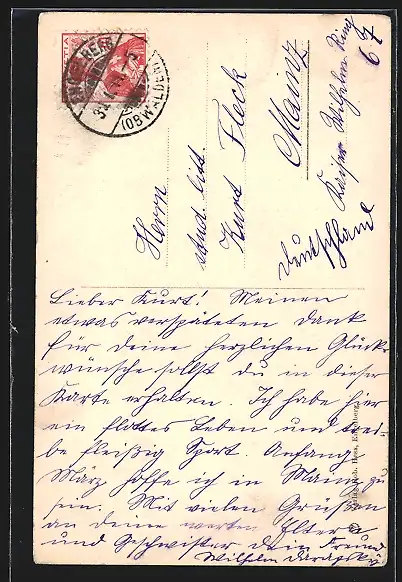 HELVETIA
ENGELBERG
(OBWALDEN)
Herrn
stud.
Kurt Fleck
Mainz
Kaiser Wilhelm Ring
67
Deutschland
Lieber Kurt! Meinen
etwas verspäteten Dank
für deine herzlichen Glück-
wünsche sollst du in dieser
Karte erhalten. Ich habe hier
ein flottes Leben und trei-
be fleißig Sport. Anfang
März hoffe ich in Mainz zu
sein. Mit vielen Grüßen
an deine werten Eltern
und Geschwister dein Freund
Wilhelm
Hess, Engelberg